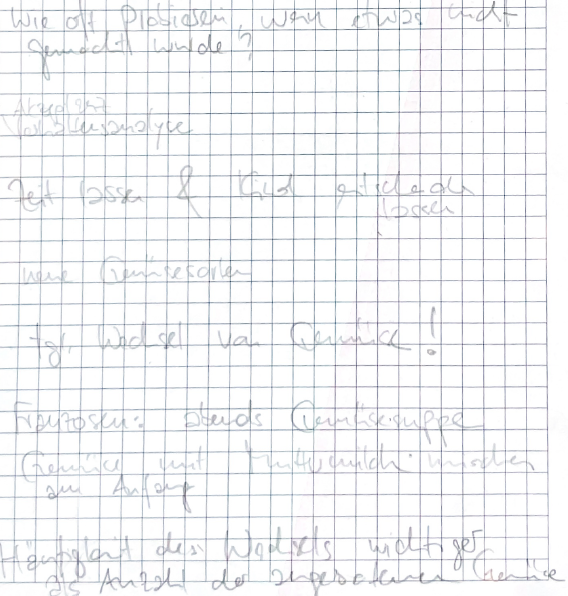 Wie oft probieren, wenn etwas nicht
gemocht wurde?
Verhaltensanalyse
Zeit lassen & Kind entscheiden
lassen
neue Gemüsesorten
tgl. Wechsel von Gemüse!
Franzosen: abends Gemüsesuppe
Gemüse mit Muttermilch mischen
am Anfang
Häufigkeit des Wechsels wichtiger
als Anzahl der angebotenen Gemüse